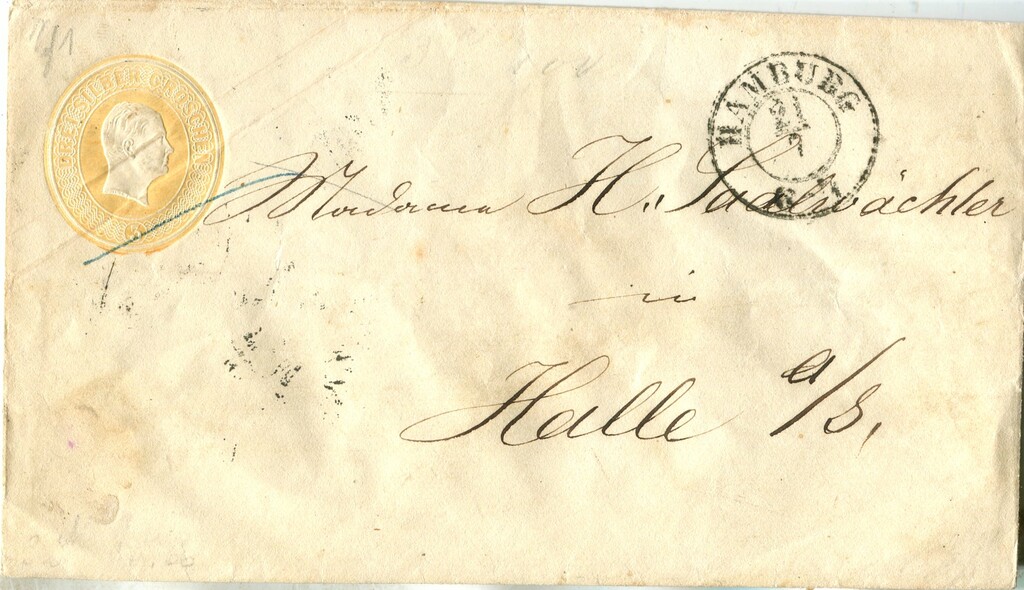 DREI SILBER GROSCHEN
3
HAMBURG
21/7
Madame H. Saalwächter
in
Halle a/S.